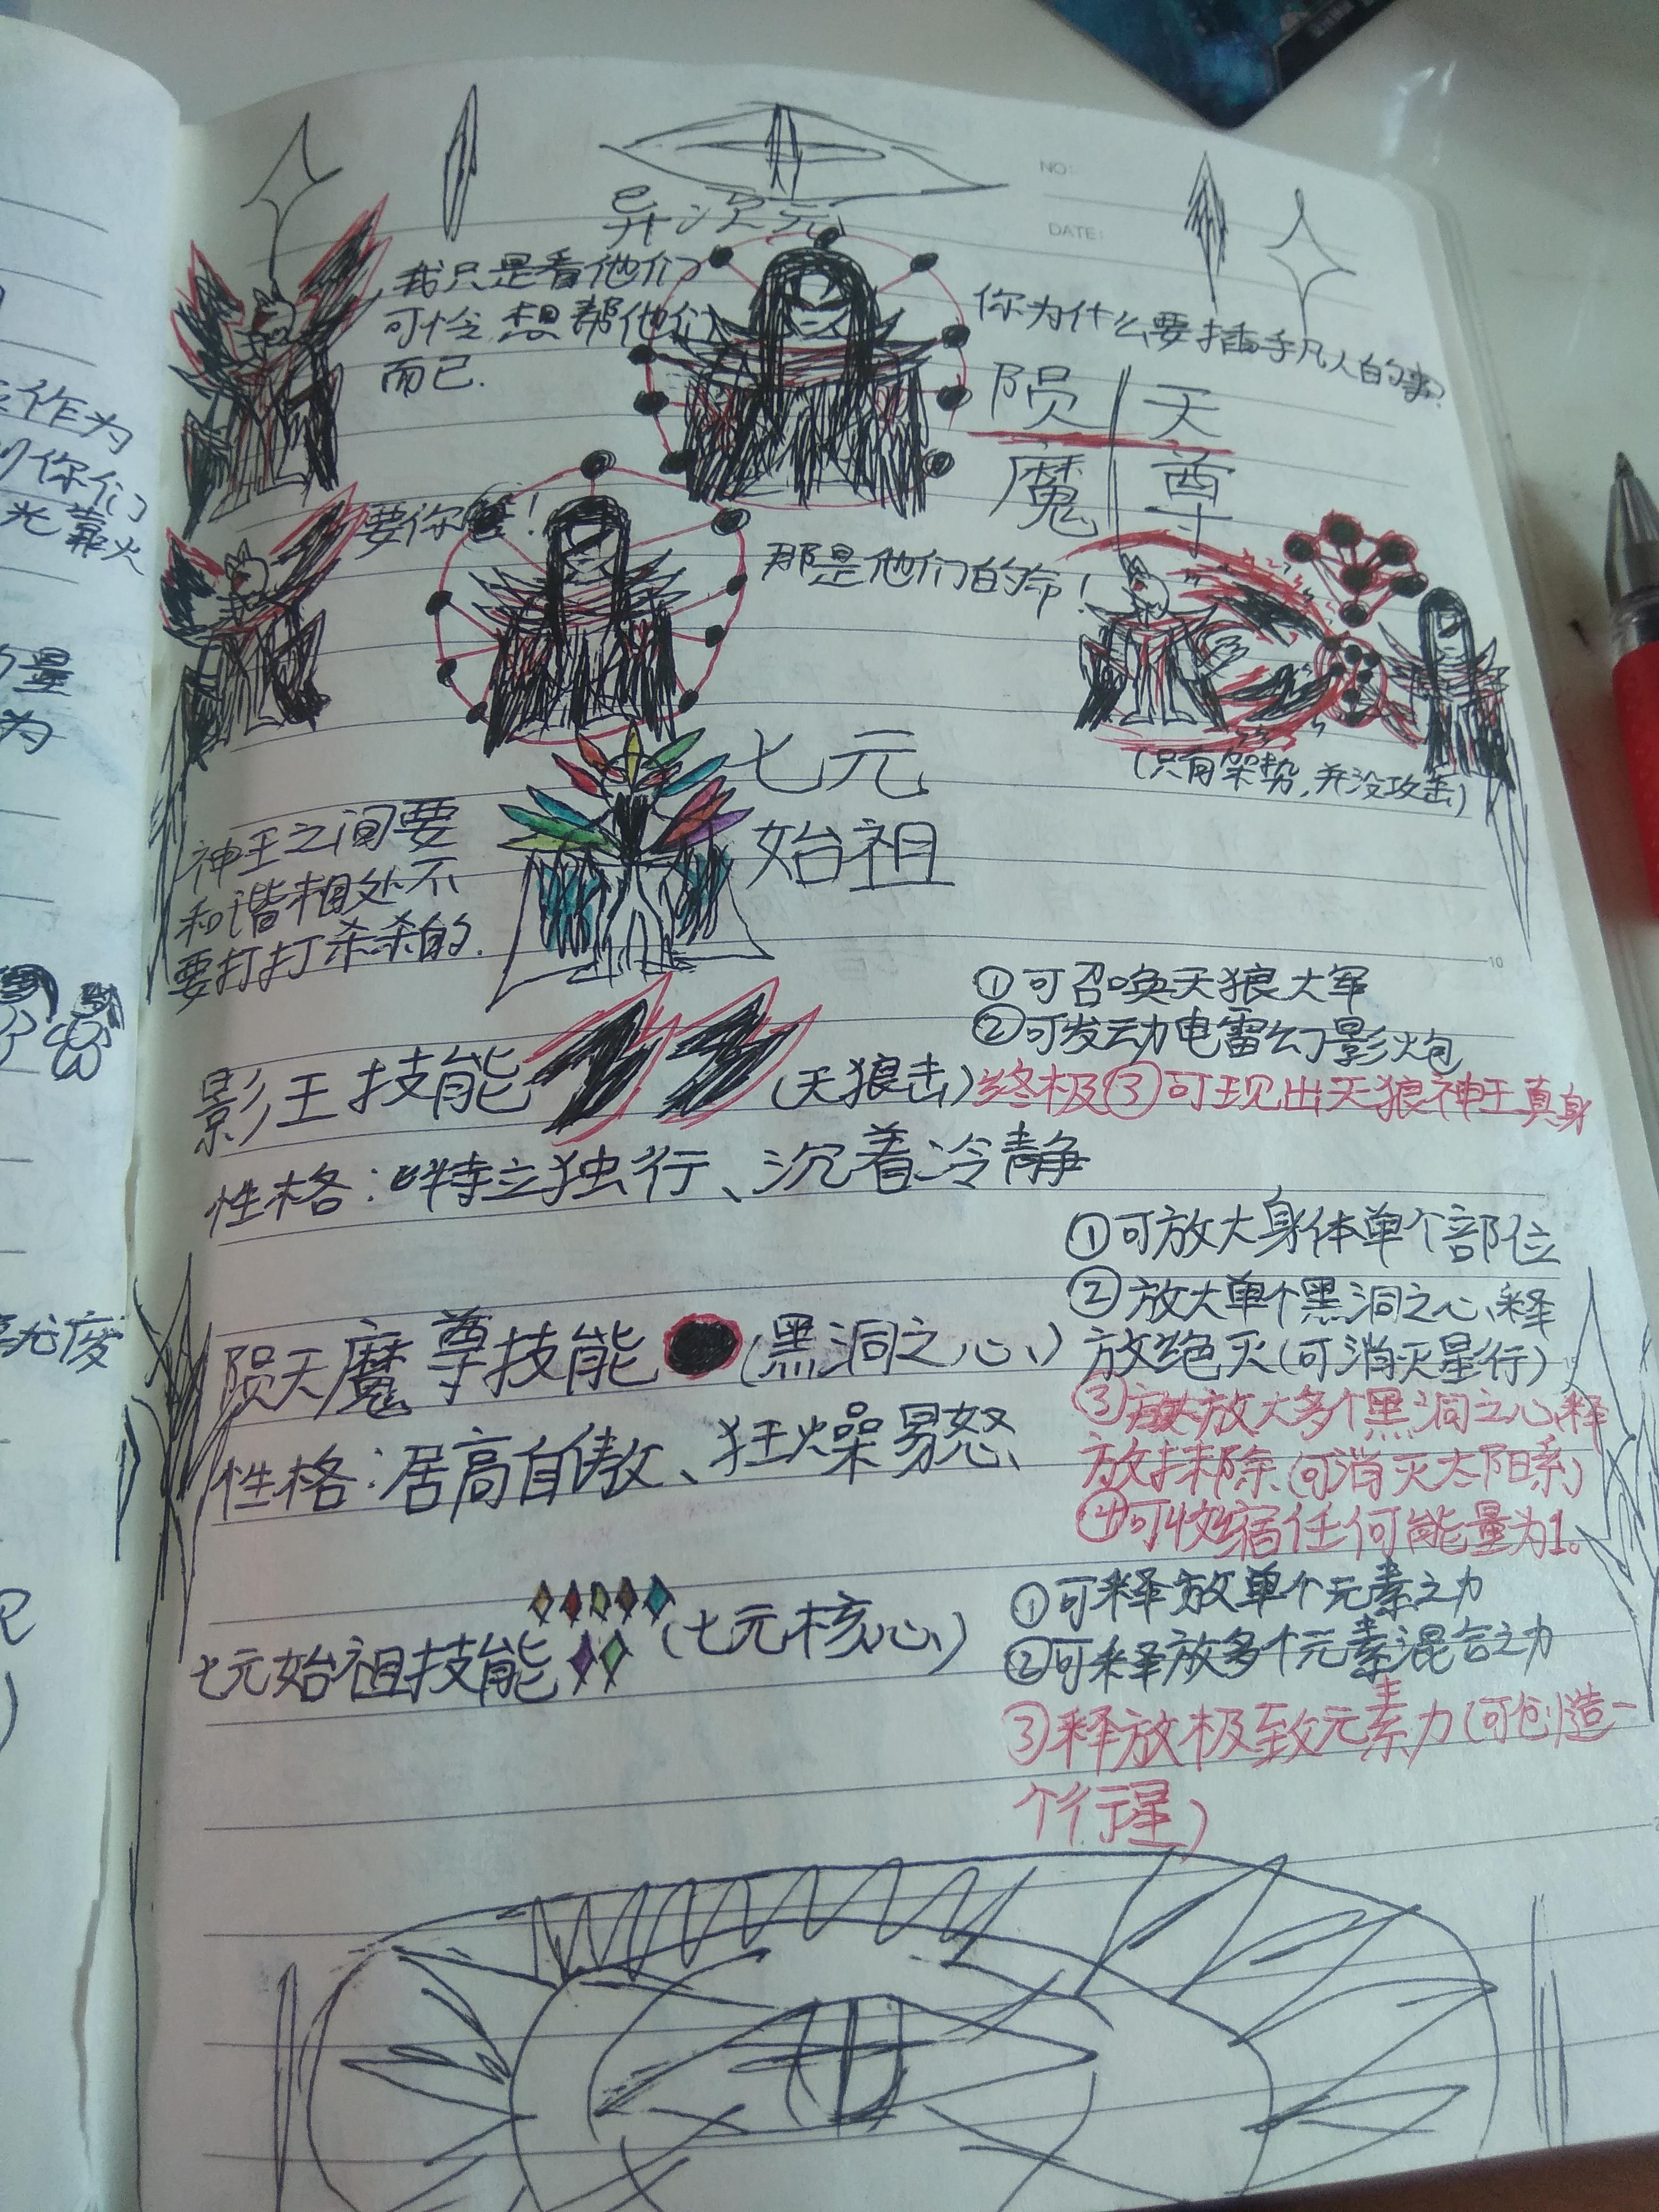 NO:
DATE:
异次元
我只是看他们
可怜,想帮他们
而已.
你为什么要插手凡人的事?
陨天
魔尊
要你管!
那是他们的命!
(只有架势,并没攻击)
七元
始祖
神王之间要
和谐相处不
要打打杀杀的.
10
①可召唤天狼大军
②可发动电雷幻影炮
影王技能
(天狼击)
终极③可现出天狼神王真身
性格:特立独行、沉着冷静
①可放大身体单个部位
②放大单个黑洞之心,释
放绝灭(可消灭星行)
陨天魔尊技能
(黑洞之心)
③放大多个黑洞之心,释
放抹除(可消灭太阳系)
④可收缩任何能量为1。
性格:居高自傲、狂燥易怒、
七元始祖技能
(七元核心)
①可释放单个元素之力
②可释放多个元素混合之力
③释放极致元素力(可创造一
个行星)
作为
你们
光靠火
星
为